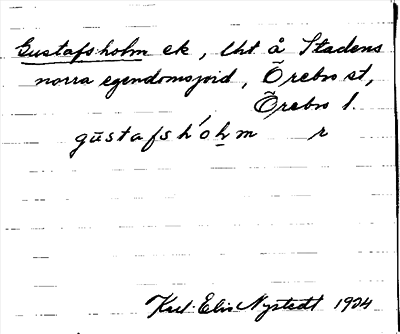 Gustafsholm ek, lht å Stadens
norra egendomsjord, Örebro st,
Örebro l.
gūstafshó̱lm r
Karl-Elis Nystedt 1924